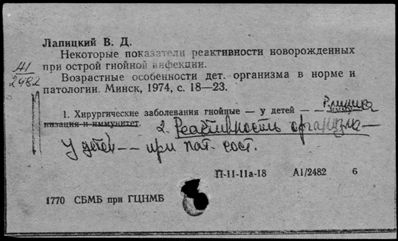 Лапицкий В. Д.
Некоторые показатели реактивности новорожденных
при острой гнойной инфекции.
А1/2482
Возрастные особенности дет. организма в норме и
патологии. Минск, 1974, с. 18—23.
1. Хирургические заболевания гнойные — у детей — Клиника
низация и иммунитет. 2. Реактивность организма —
у детей — при пат. сост.
П-11-11а-18 А1/2482 6
1770 СБМБ при ГЦНМБ